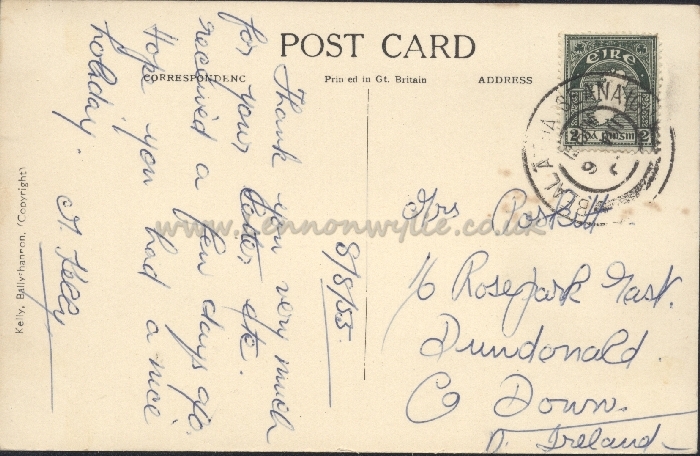 POST CARD
CORRESPONDENC
Prin ed in Gt. Britain
ADDRESS
ÉIRE
2 2
8/8/55
Thank you very much
for your letter etc.
received a few days ago.
Hope you had a nice
holiday.
Kelly
Mrs
16 Rosepark East.
Dundonald
Co Down.
N. Ireland
Kelly, Ballyshannon. (Copyright)
www.lennonwylie.co.uk